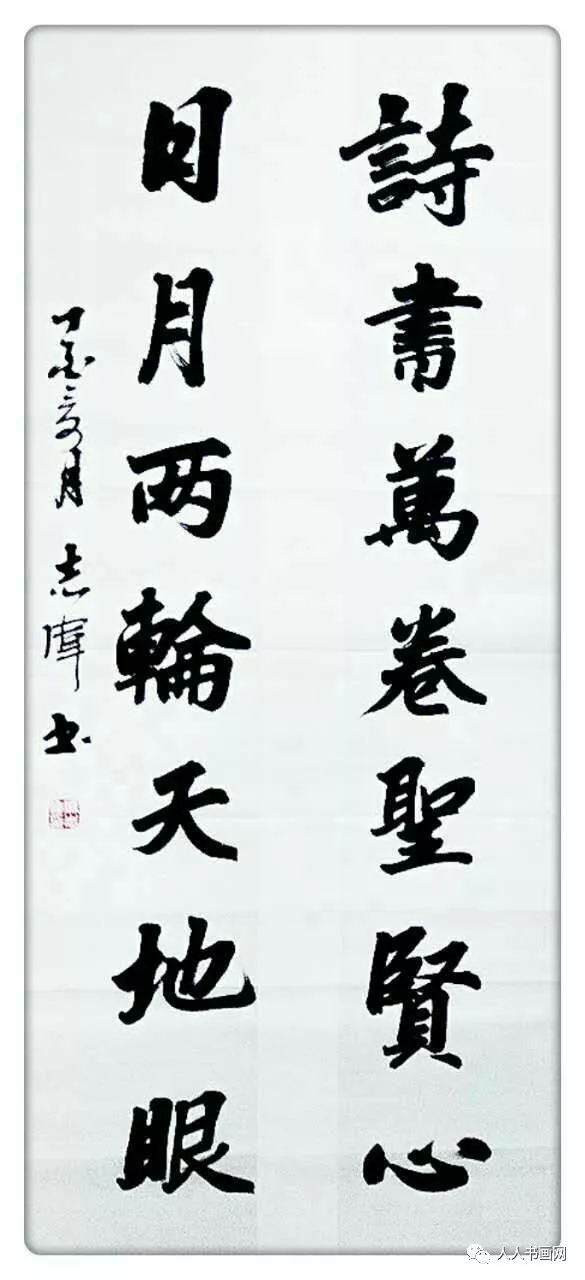 詩書萬卷聖賢心
日月两輪天地眼
丁酉三月志偉书
人人书画网